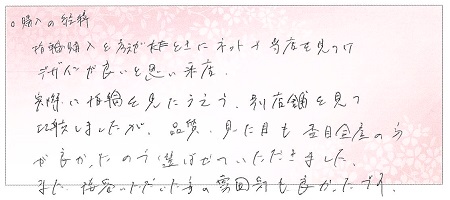 ○購入の経緯
指輪購入を考えたときにネットで当店を見つけ
デザインが良いと思い来店。
実際に指輪を見たうえで、別店舗を見て
比較しましたが、品質、見た目も杢目金屋の方
が良かったので選ばせていただきました。
また接客いただいた方の雰囲気も良かったです。